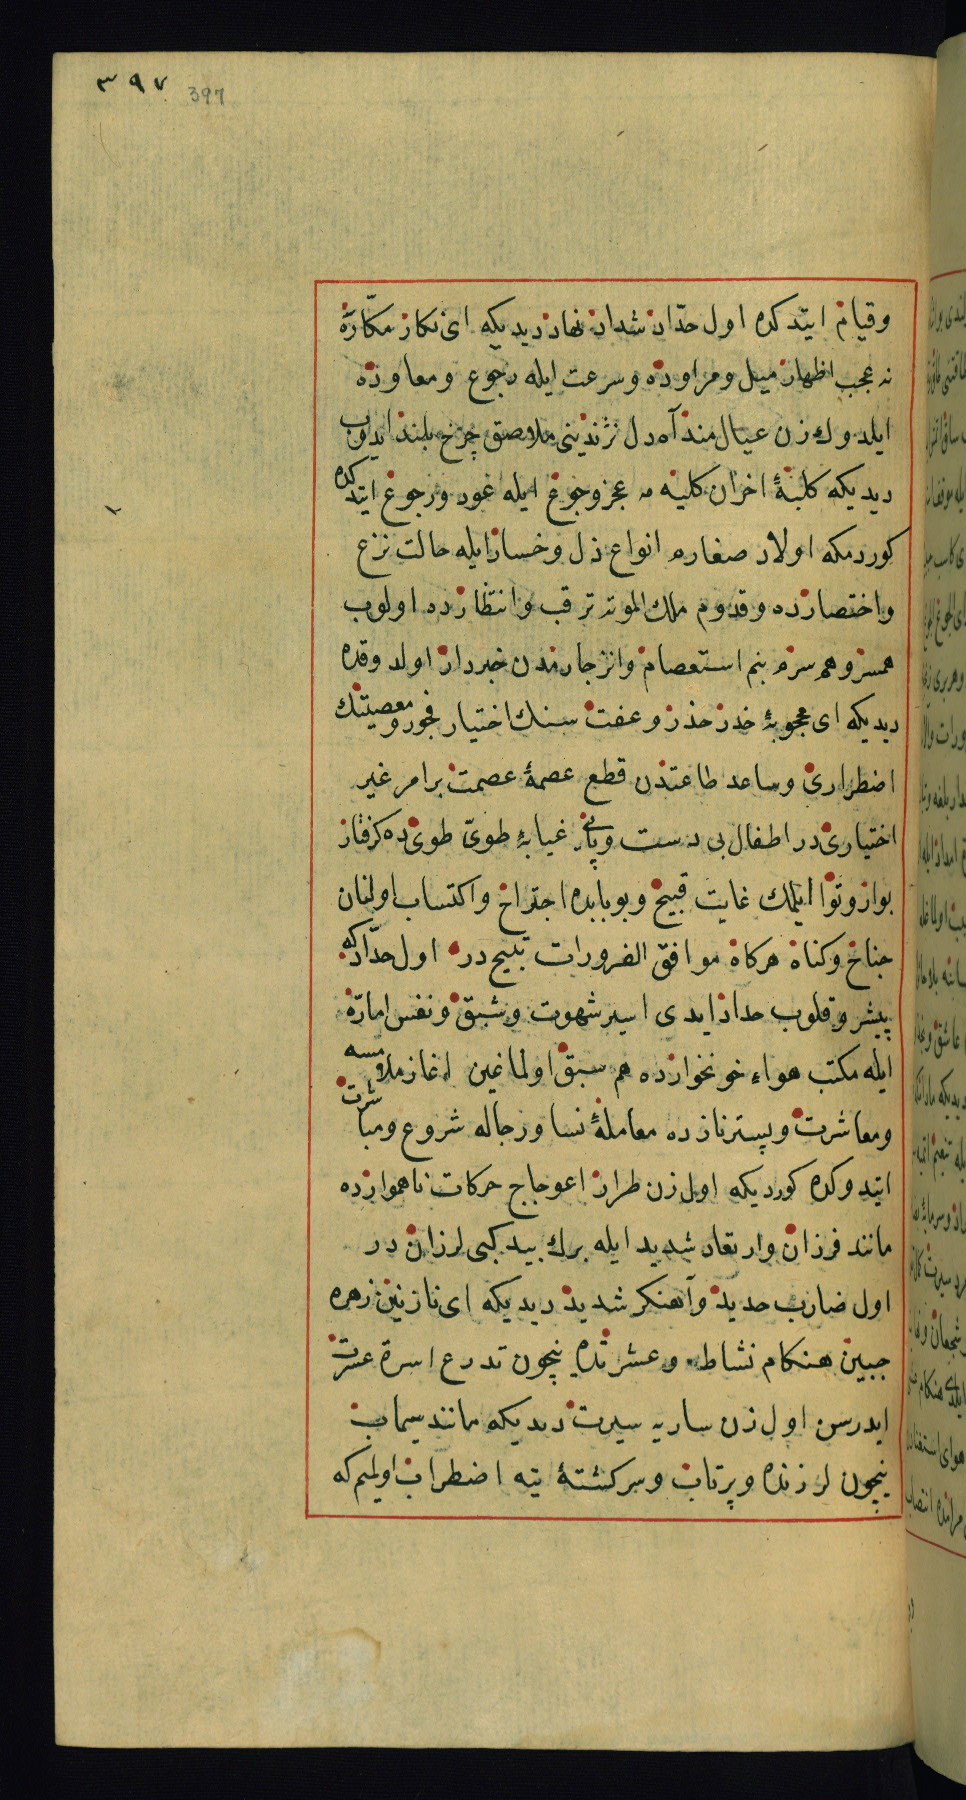 ٣٩٧ 397
وقيام ايتدكده اول حدّاد شداد نهاد ديديكه اى نكار مكّاره
نه عجب اظهار ميل ومراوده وسرعت ايله رجوع ومعاوده
ايلدوك زن عيالمند آه دل نژندينى ملاصق چرخ بلند ايدوب
ديديكه كلبهٔ احزان كلينه مه عجز وجوع ايله عود ورجوع ايتدكده
كوردمكه اولاد صغارم انواع ذل وخسار ايله حالت نزع
واحتضارده وقدوم ملك الموته ترقب وانتظارده اولوب
همسر وهم سرّم بنم استعصام وانزجارمدن خبردار اولدوقده
ديديكه اى محجوبهٔ خدر حذر وعفت سنك اختيار فجور ومعصيتك
اضطرارى وساعد طاعتدن قطع عصمهٔ عصمت بر امر غير
اختياريدر اطفال بى دست وپايى غيابهٔ طوىّ طوىده كرفتار
بوار وتوا ايلمك غايت قبيح وبوبابده اجتراح واكتساب اولنان
جناح وكناه هركاه موافق الضرورات تبيح در اول حدّاد كه
پيشرو قلوب حداد ايدى اسير شهوت وشبق ونفس امارّه
ايله مكتب هواء خونخوارده هم سبق اولماغين اغاز ملامسه
ومعاشرت وپسترنازده معاملهٔ نسا ورجاله شروع ومباشرت
ايتدوكده كورديكه اول زن طرار اعوجاج حركات ناهموارده
مانند فرزان وارتعاد شديد ايله برك بيد كبى لرزان در
اول ضارب حديد وآهنكر شديد ديديكه اى نازنين زهره
جبين هنكام نشاط وعشرتده نيچون تدرع اسرهٔ عسرت
ايدرسن اول زن ساريه سيرت ديديكه مانند سيماب
نيچون لرزنده وپرتاب وسركشتهٔ تيه اضطراب اولميم كه